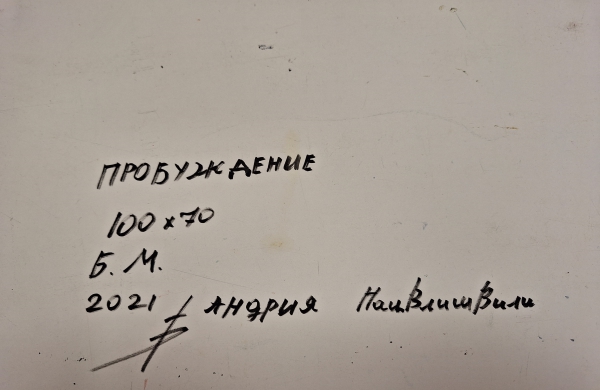 ПРОБУЖДЕНИЕ
100 x 70
Б. М.
2021 АНДРИЯ НацВлишВили